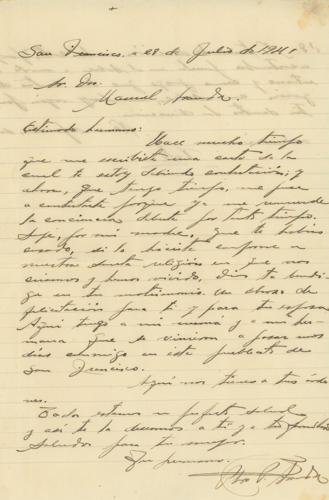 San Francisco. 28 de Julio de 1911
Sr. Don
Manuel
Estimado hermano:
Hace mucho tiempo
que me escribiste una carta de la
cual te estoy debiendo contestación; y
ahora, que tengo tiempo, me puse
a contestarte porque ya me remuerde
la conciencia por tanto tiempo.
Supe, por mi madre, que te habías
casado, si lo hiciste conforme a
nuestra santa religión en que nos
criamos y hemos vivido, Dios te bendi-
ga en tu matrimonio. Un abrazo de
felicitación para ti y para tu esposa
Aquí tengo a mi mamá y a mi her-
mana que se vinieron a pasar unos
días conmigo en este pueblito de
San Francisco.
Aquí nos tienes a tus órde-
nes.
Todos estamos en perfecta salud
y así te la deseamos a ti y a tu familia
Saludos para tu mujer.
Tu hermano.